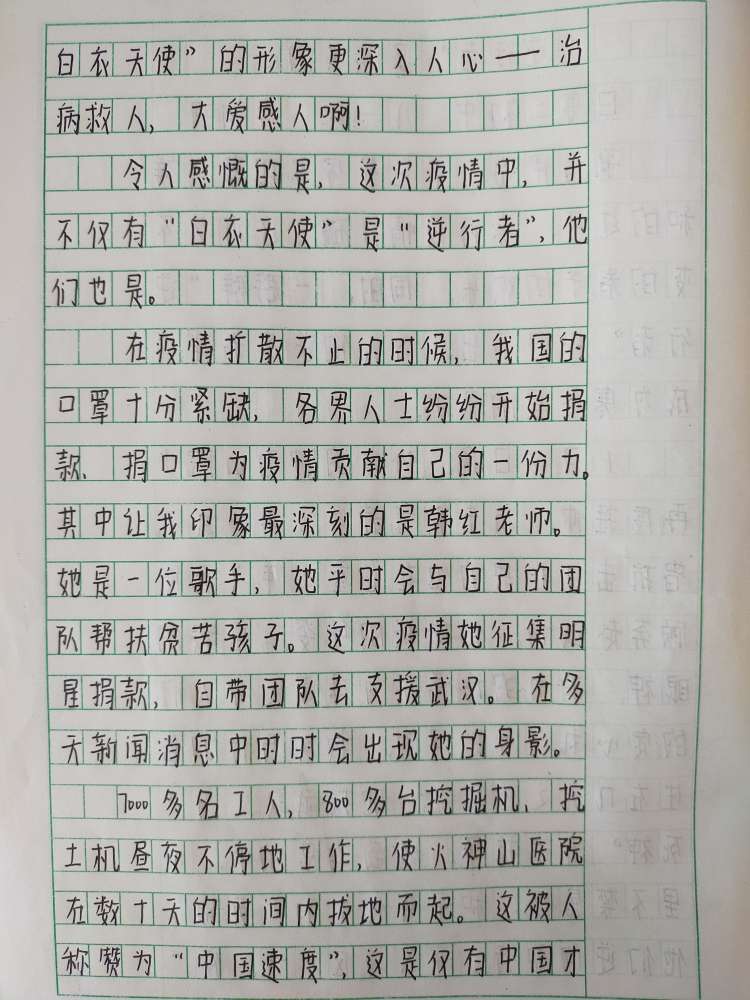 白衣天使”的形象更深入人心——治
病救人，大爱感人啊！
令人感慨的是，这次疫情中，并
不仅有“白衣天使”是“逆行者”，他
们也是。
在疫情折散不止的时候，我国的
口罩十分紧缺，各界人士纷纷开始捐
款、捐口罩为疫情贡献自己的一份力。
其中让我印象最深刻的是韩红老师。
她是一位歌手，她平时会与自己的团
队帮扶贫苦孩子。这次疫情她征集明
星捐款，自带团队去支援武汉。在多
天新闻消息中时时会出现她的身影。
7000多名工人，800多台挖掘机、挖
土机昼夜不停地工作，使火神山医院
在数十天的时间内拔地而起。这被人
称赞为“中国速度”，这是仅有中国才